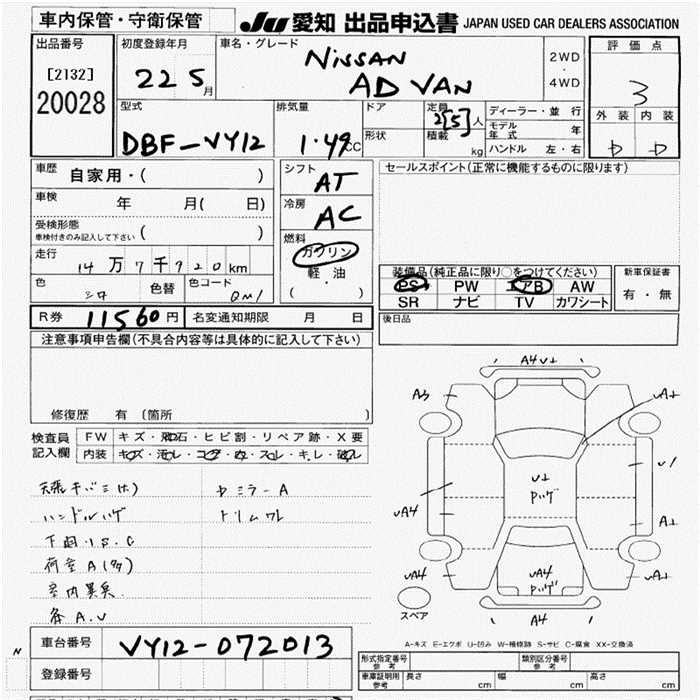 車内保管・守衛保管
JU 愛知 出品申込書 JAPAN USED CAR DEALERS ASSOCIATION
出品番号
[2132]
20028
初度登録年月
22 5月
車名・グレード
NISSAN
AD VAN
2WD
・
4WD
評価点
3
外装 内装
D D
型式
DBF-VY12
排気量
1.49CC
ドア
形状
定員
2[5]人
積載
kg
ディーラー・並行
モデル年式 年
ハンドル 左・右
車歴
自家用・( )
車検 年 月( 日)
受検形態
車検付きのみ記入して下さい ( )
走行
14万7千920km
色
シロ
色替
色コード
QM1
シフト
AT
冷房
AC
燃料
ガソリン
軽・油
( )
セールスポイント(正常に機能するものに限ります)
装備品(純正品に限り○をつけてください)
PS PW エアB AW
SR ナビ TV カワシート
新車保証書
有・無
後日品
R券 11560円 名変通知期限 月 日
注意事項申告欄(不具合内容等は具体的に記入して下さい)
修復歴 有 (箇所 )
検査員
記入欄
FW キズ・飛石・ヒビ割・リペア跡・X要
内装 キズ・汚レ・コゲ・穴・スレ・キレ・破レ
ハンドルハゲ
下回りS.C
荷室A(多)
室内異臭
各A.U
RミラーA
トリムワレ
A4U+
A3
UA4
UA4
A4
U+
Pハゲ
UA4
Pハゲ
スペア
A-キズ E-エクボ U-凹み W-補修跡 S-サビ C-腐食 XX-交換済
車台番号
VY12-072013
登録番号
N
形式指定番号
参考
類別区分番号
参考
車庫証明用
参考
長さ cm 幅 cm 高さ cm